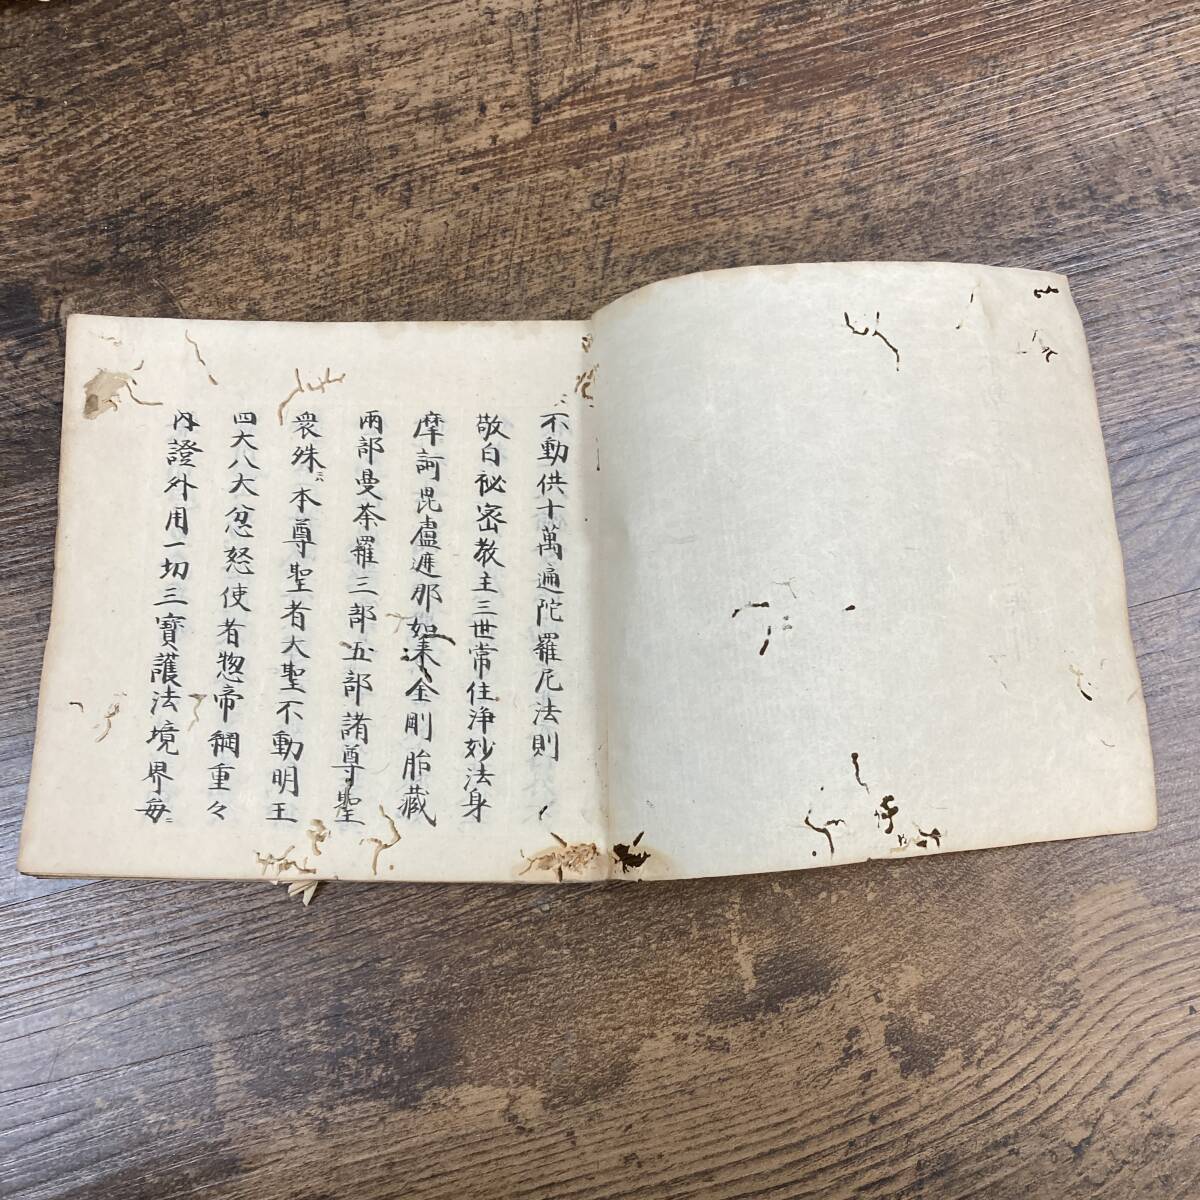 不動供十萬遍陀羅尼法則
敬白秘密教主三世常住浄妙法身
摩訶毘盧遮那如来金剛胎蔵
兩部曼荼羅三部五部諸尊聖
衆殊ニハ本尊聖者大聖不動明王
四大八大忿怒使者惣帝網重々
内證外用一切三寶護法境界毎ニ